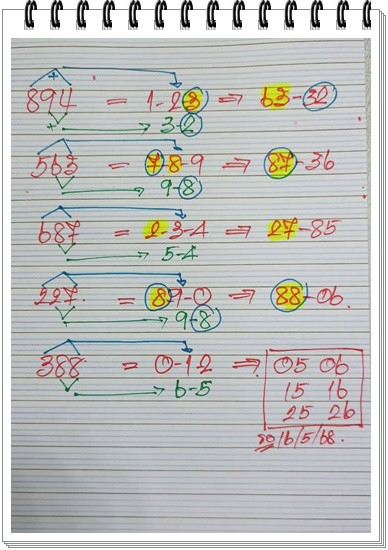 +
894 = 1-2-3 ⇒ 63-32
+ → 3-2
563 = 7-8-9 ⇒ 87-36
→ 9-8
687 = 2-3-4 ⇒ 27-85
→ 5-4
227 = 8-9-0 ⇒ 88-06
→ 9-8
388 = 0-1-2 ⇒ 05 06
→ 6-5 15 16
25 26